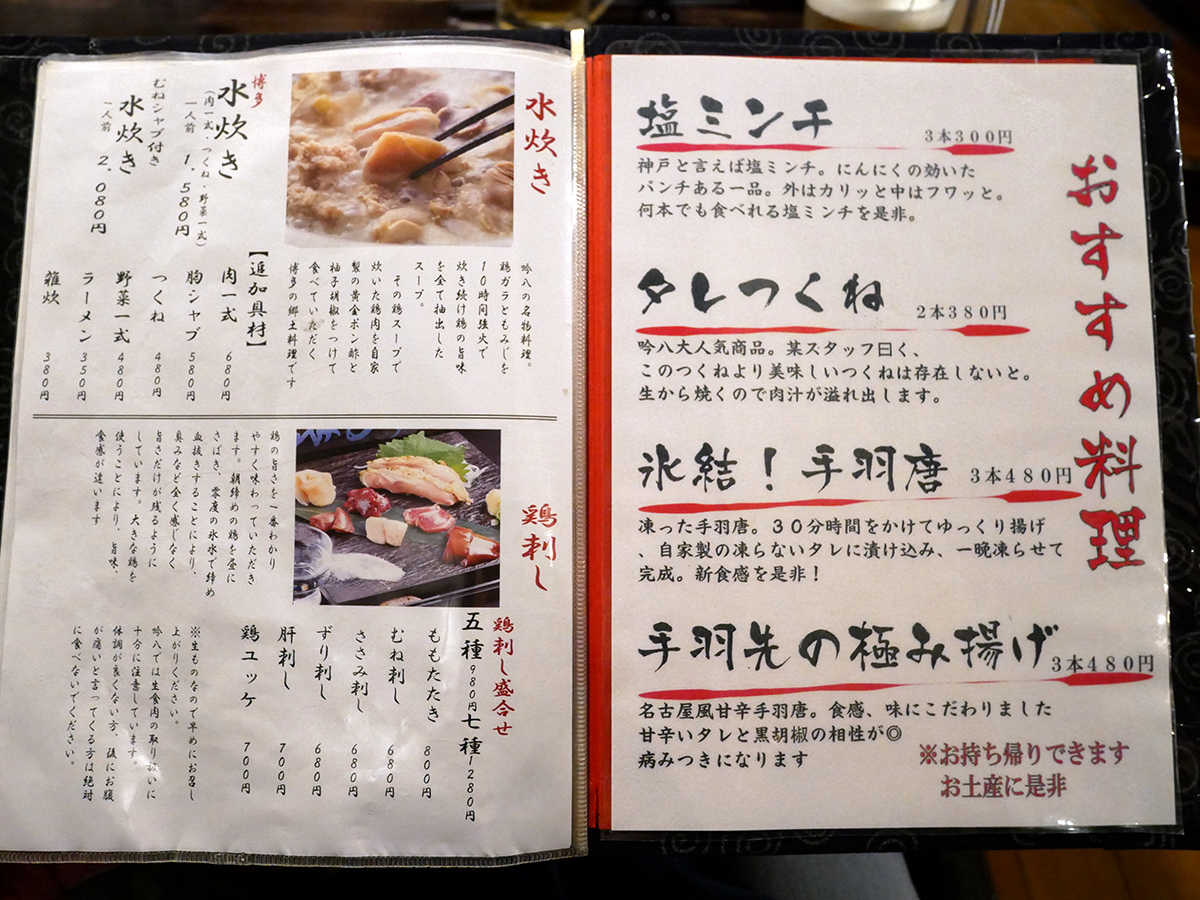 水炊き
吟八の名物料理。
鶏ガラともみじを
10時間強火で
炊き続け鶏の旨味
を全て抽出した
スープ。
その鶏スープで
炊いた鶏肉を自家
製の黄金ポン酢と
柚子胡椒をつけて
食べていただく
博多の郷土料理です
博多
水炊き
(肉一式・つくね・野菜一式)
一人前 1,580円
むねシャブ付き
水炊き
一人前 2,080円
【追加具材】
肉一式 680円
胸シャブ 580円
つくね 480円
野菜一式 480円
ラーメン 350円
雑炊 380円
鶏刺し
鶏の旨さを一番わかり
やすく味わっていただき
ます。朝締めの鶏を昼に
さばき、零度の氷水で締め
血抜きすることにより、
臭みなど全く感じなく
旨さだけが残るように
しています。大きな鶏を
使うことにより、旨味、
食感が違います
鶏刺し盛合せ
五種980円七種1280円
ももたたき 800円
むね刺し 680円
ささみ刺し 680円
ずり刺し 680円
肝刺し 700円
鶏ユッケ 700円
※生ものなので早めにお召し
上がりください。
吟八では生食肉の取り扱いに
十分に注意しています。
体調が良くない方、後にお腹
が痛いと言ってくる方は絶対
に食べないでください。
おすすめ料理
塩ミンチ 3本300円
神戸と言えば塩ミンチ。にんにくの効いた
パンチある一品。外はカリッと中はフワッと。
何本でも食べれる塩ミンチを是非。
タレつくね 2本380円
吟八大人気商品。某スタッフ曰く、
このつくねより美味しいつくねは存在しないと。
生から焼くので肉汁が溢れ出します。
氷結！手羽唐 3本480円
凍った手羽唐。30分時間をかけてゆっくり揚げ
、自家製の凍らないタレに漬け込み、一晩凍らせて
完成。新食感を是非！
手羽先の極み揚げ 3本480円
名古屋風甘辛手羽唐。食感、味にこだわりました
甘辛いタレと黒胡椒の相性が◎
病みつきになります
※お持ち帰りできます
お土産に是非